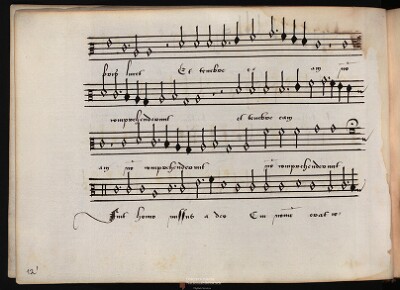 lucet Et tenebre eā nō
comprehenderunt et tenebre eam
nō comprehenderunt nō comprehenderunt
Fuit homo missus a deo Cui nomē erat io
12